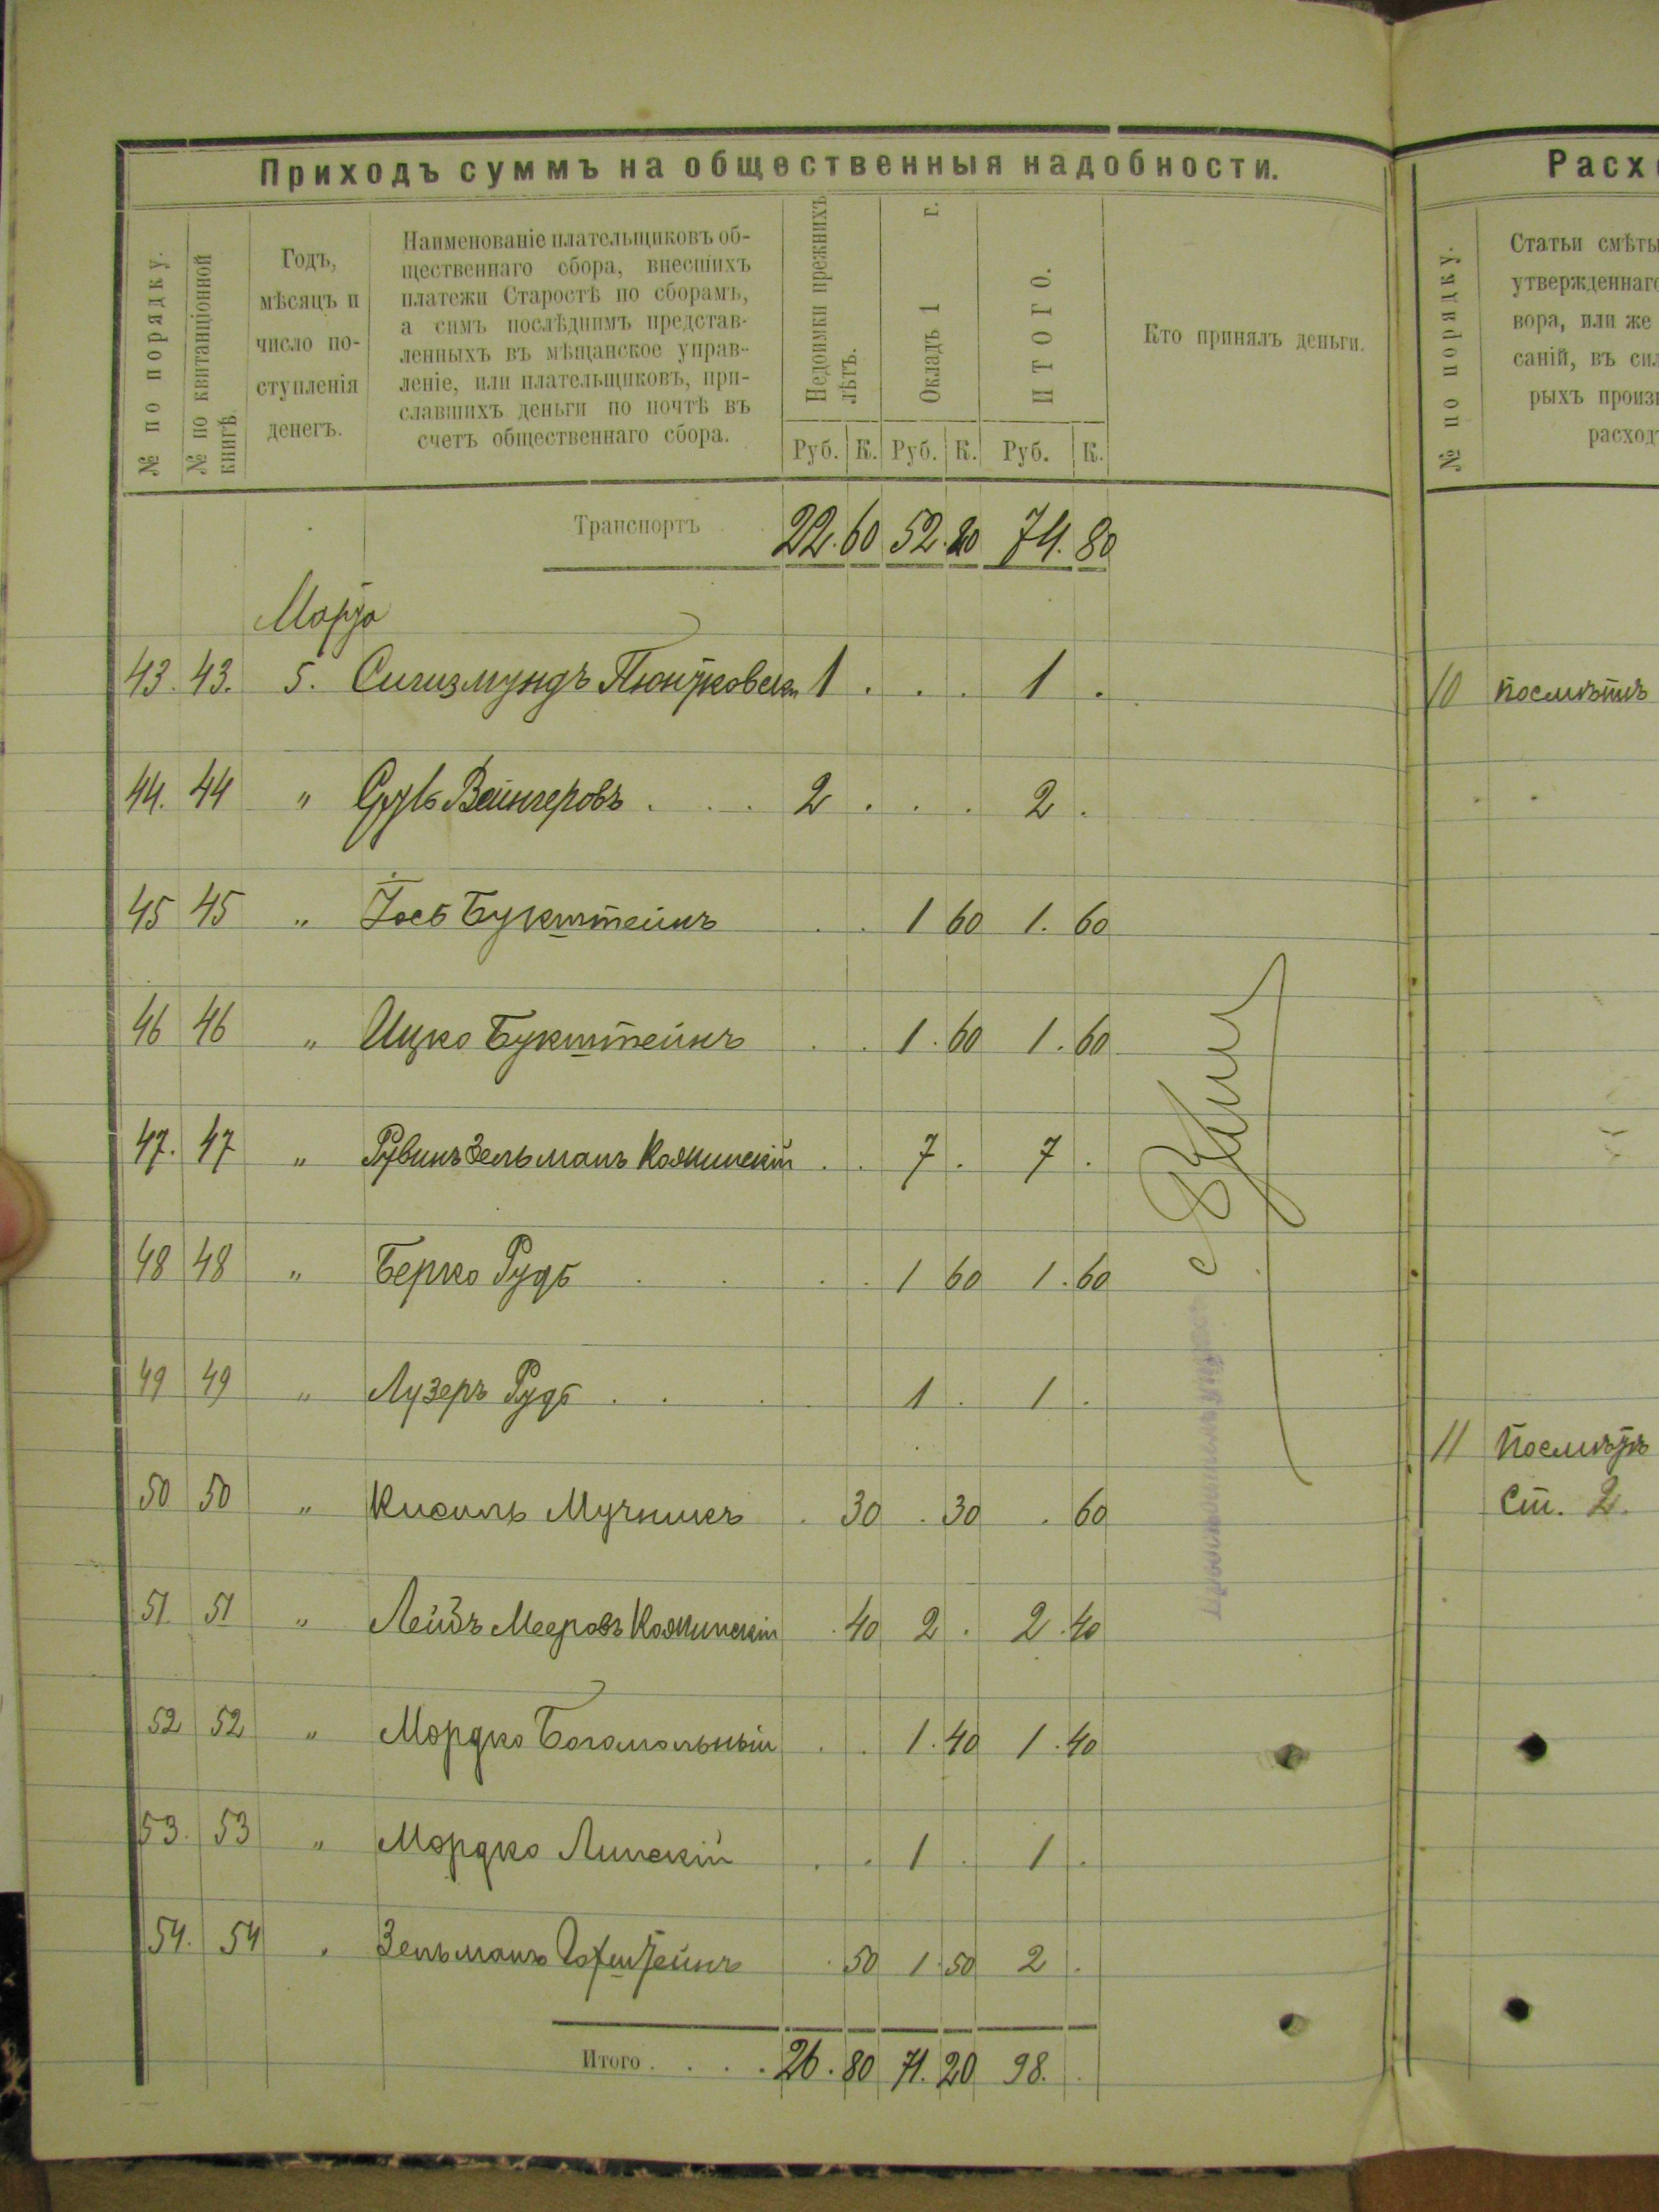 Приходъ суммъ на общественныя надобности.
№ по порядку.
№ по квитанціонной
книгѣ.
Годъ,
мѣсяцъ и
число по-
ступленія
денегъ.
Наименованіе плательщиковъ об-
щественнаго сбора, внесшихъ
платежи Старостѣ по сборамъ,
а симъ послѣднимъ представ-
ленныхъ въ мѣщанское управ-
леніе, или плательщиковъ, при-
славшихъ деньги по почтѣ въ
счетъ общественнаго сбора.
Недоимки прежнихъ
лѣтъ.
Окладъ 1 г.
ИТОГО.
Руб. К. Руб. К. Руб. К.
Кто принялъ деньги.
Транспортъ 22. 60 52. 20 74. 80
Марта
43. 43. 5. Сигизмундъ 1 . . . 1 .
44. 44 " Вейнгеровъ . . . 2 . . . 2 .
45 45 " Іось Букштейнъ . . 1 60 1. 60
46 46 " Ицко Букштейнъ . . 1. 60 1. 60
47. 47 " Рувинъ Зельманъ Кожинскій . . 7 . 7 .
48 48 " Берко Рудь . . . . 1 60 1. 60
49 49 " Лузеръ Рудь . . . . 1 . 1 .
50 50 " Кисиль Мучникъ . 30 . 30 . 60
51. 51 " Лейзъ Мееровъ Кожинскій . 40 2 . 2. 40
52 52 " Мордко Богомольный . . 1. 40 1. 40
53. 53 " Мордко Линскій . . 1 . 1 .
54. 54 " Зельманъ Гофштейнъ . 50 1. 50 2 .
Итого . . . . 26. 80 71. 20 98. .
Расх
№ по порядку.
Статьи смѣты
утвержденнаго
вора, или же
саній, въ сил
рыхъ произв
расход
10 посмѣтѣ
11 Посмѣтѣ
Ст. 2.